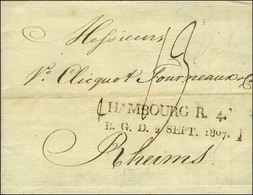 Messieurs
Vve Clicquot Fourneaux & Co
HAMBOURG R. 4.
B. G. D. 2 SEPT. 1807.
Rheims.